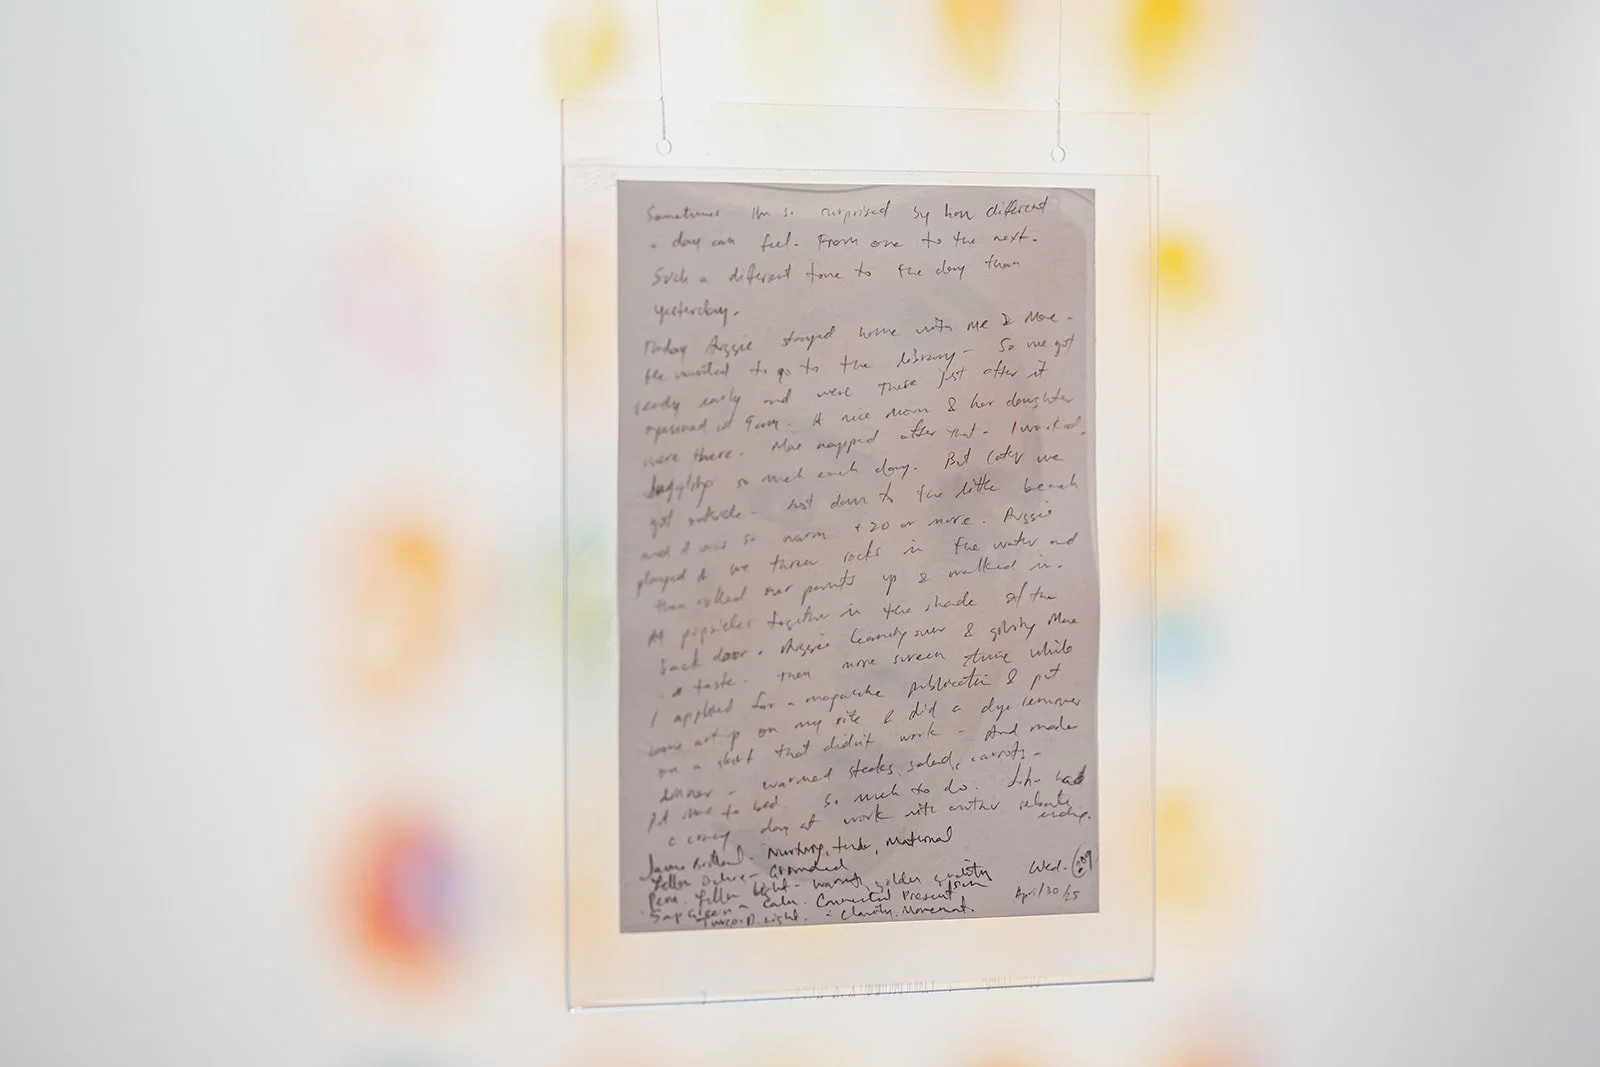 Sometimes I'm so surprised by how different
a day can feel. From one to the next.
Such a different tone to the day than
yesterday.
Today Auggie stayed home with me & Mae -
He wanted to go to the library - So we got
ready early and were there just after it
opened at 9am. A nice mom & her daughter
were there. Mae napped after that - I worked.
so much each day. But later we
got outside - but down to the little beach
and it was so warm +20 or more. Auggie
played & we threw rocks in the water and
then rolled our pants up & walked in.
popsicles together in the shade of the
back door. Auggie leaning over & giving Mae
a taste. Then more screen time while
I applied for a magazine publication & put
some art up on my site & did a dye remover
on a shirt that didn't work - And made
dinner - warmed steaks, salad, carrots -
Put Mae to bed. So much to do. had
a crazy day at work with another
ending.
- Nurturing, tender, Maternal
Yellow Ochre - Grounded
Perm. Yellow Light - warmth, golden quality
Sap Green - Calm. Connected Present
Light. - Clarity. Movement.
Wed.
April/30/25